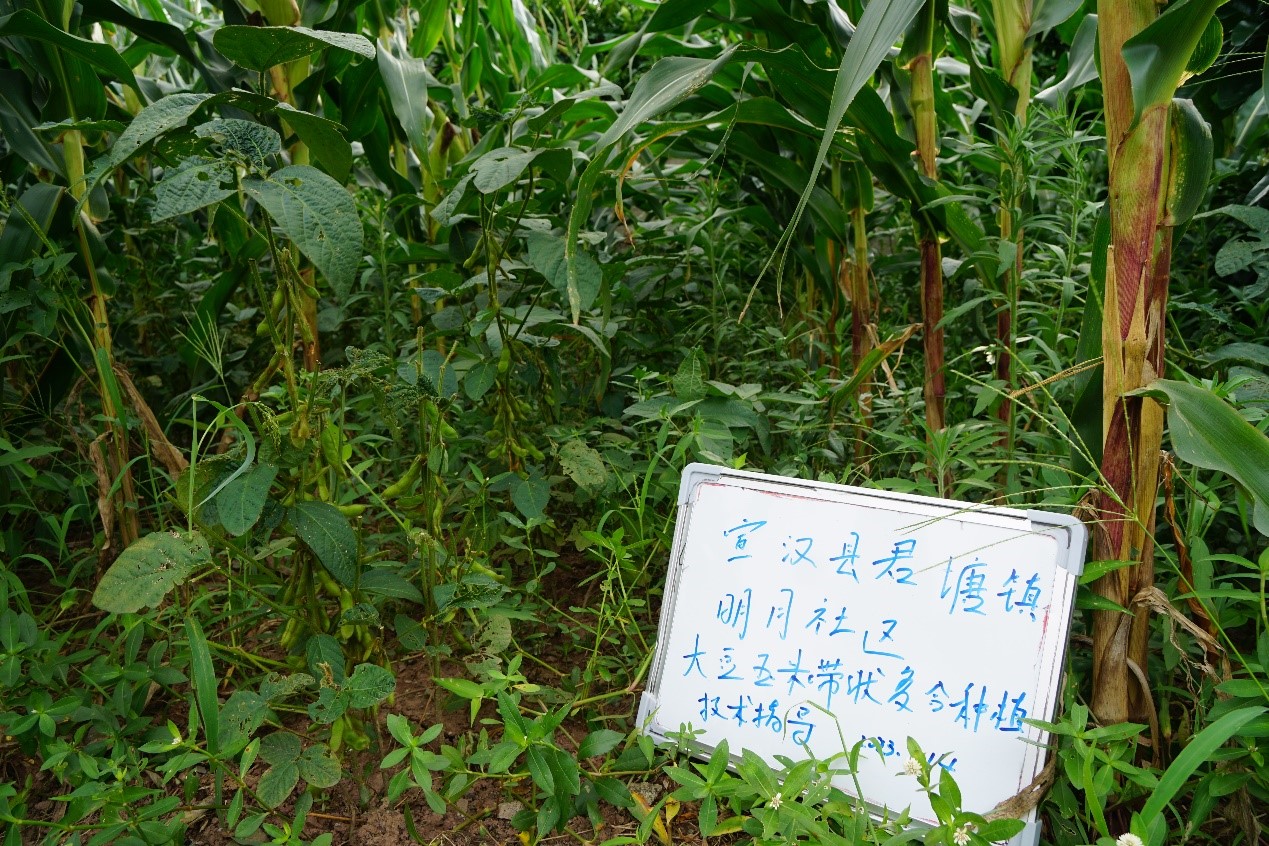 宣汉县君塘镇
明月社区
大豆玉米带状复合种植
技术指导